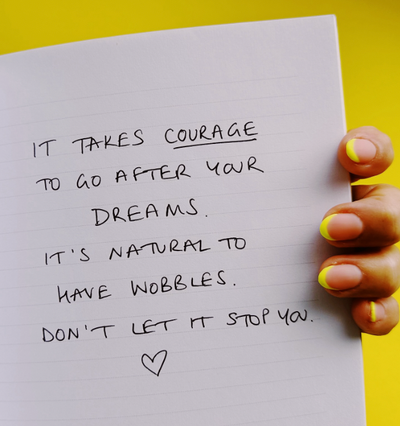 IT TAKES COURAGE
TO GO AFTER YOUR
DREAMS.
IT'S NATURAL TO
HAVE WOBBLES.
DON'T LET IT STOP YOU.